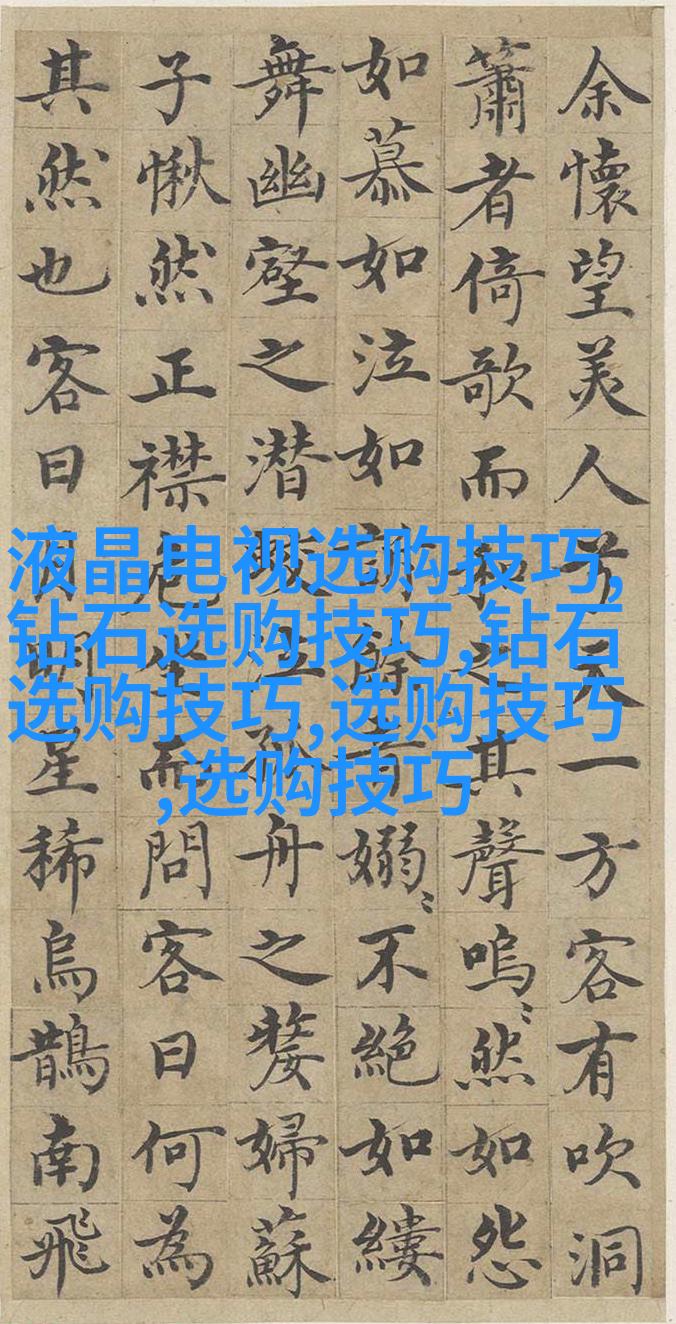 余懷望美人兮天一方客有吹洞
簫者倚歌而和之其聲嗚〻然如怨
如慕如泣如訴餘音嫋〻不絕如縷
舞幽壑之潛蛟泣孤舟之嫠婦蘇
子愀然正襟危坐而問客曰何為
其然也客曰月明星稀烏鵲南飛
液晶电视选购技巧,
钻石选购技巧,钻石
选购技巧,选购技巧
,选购技巧